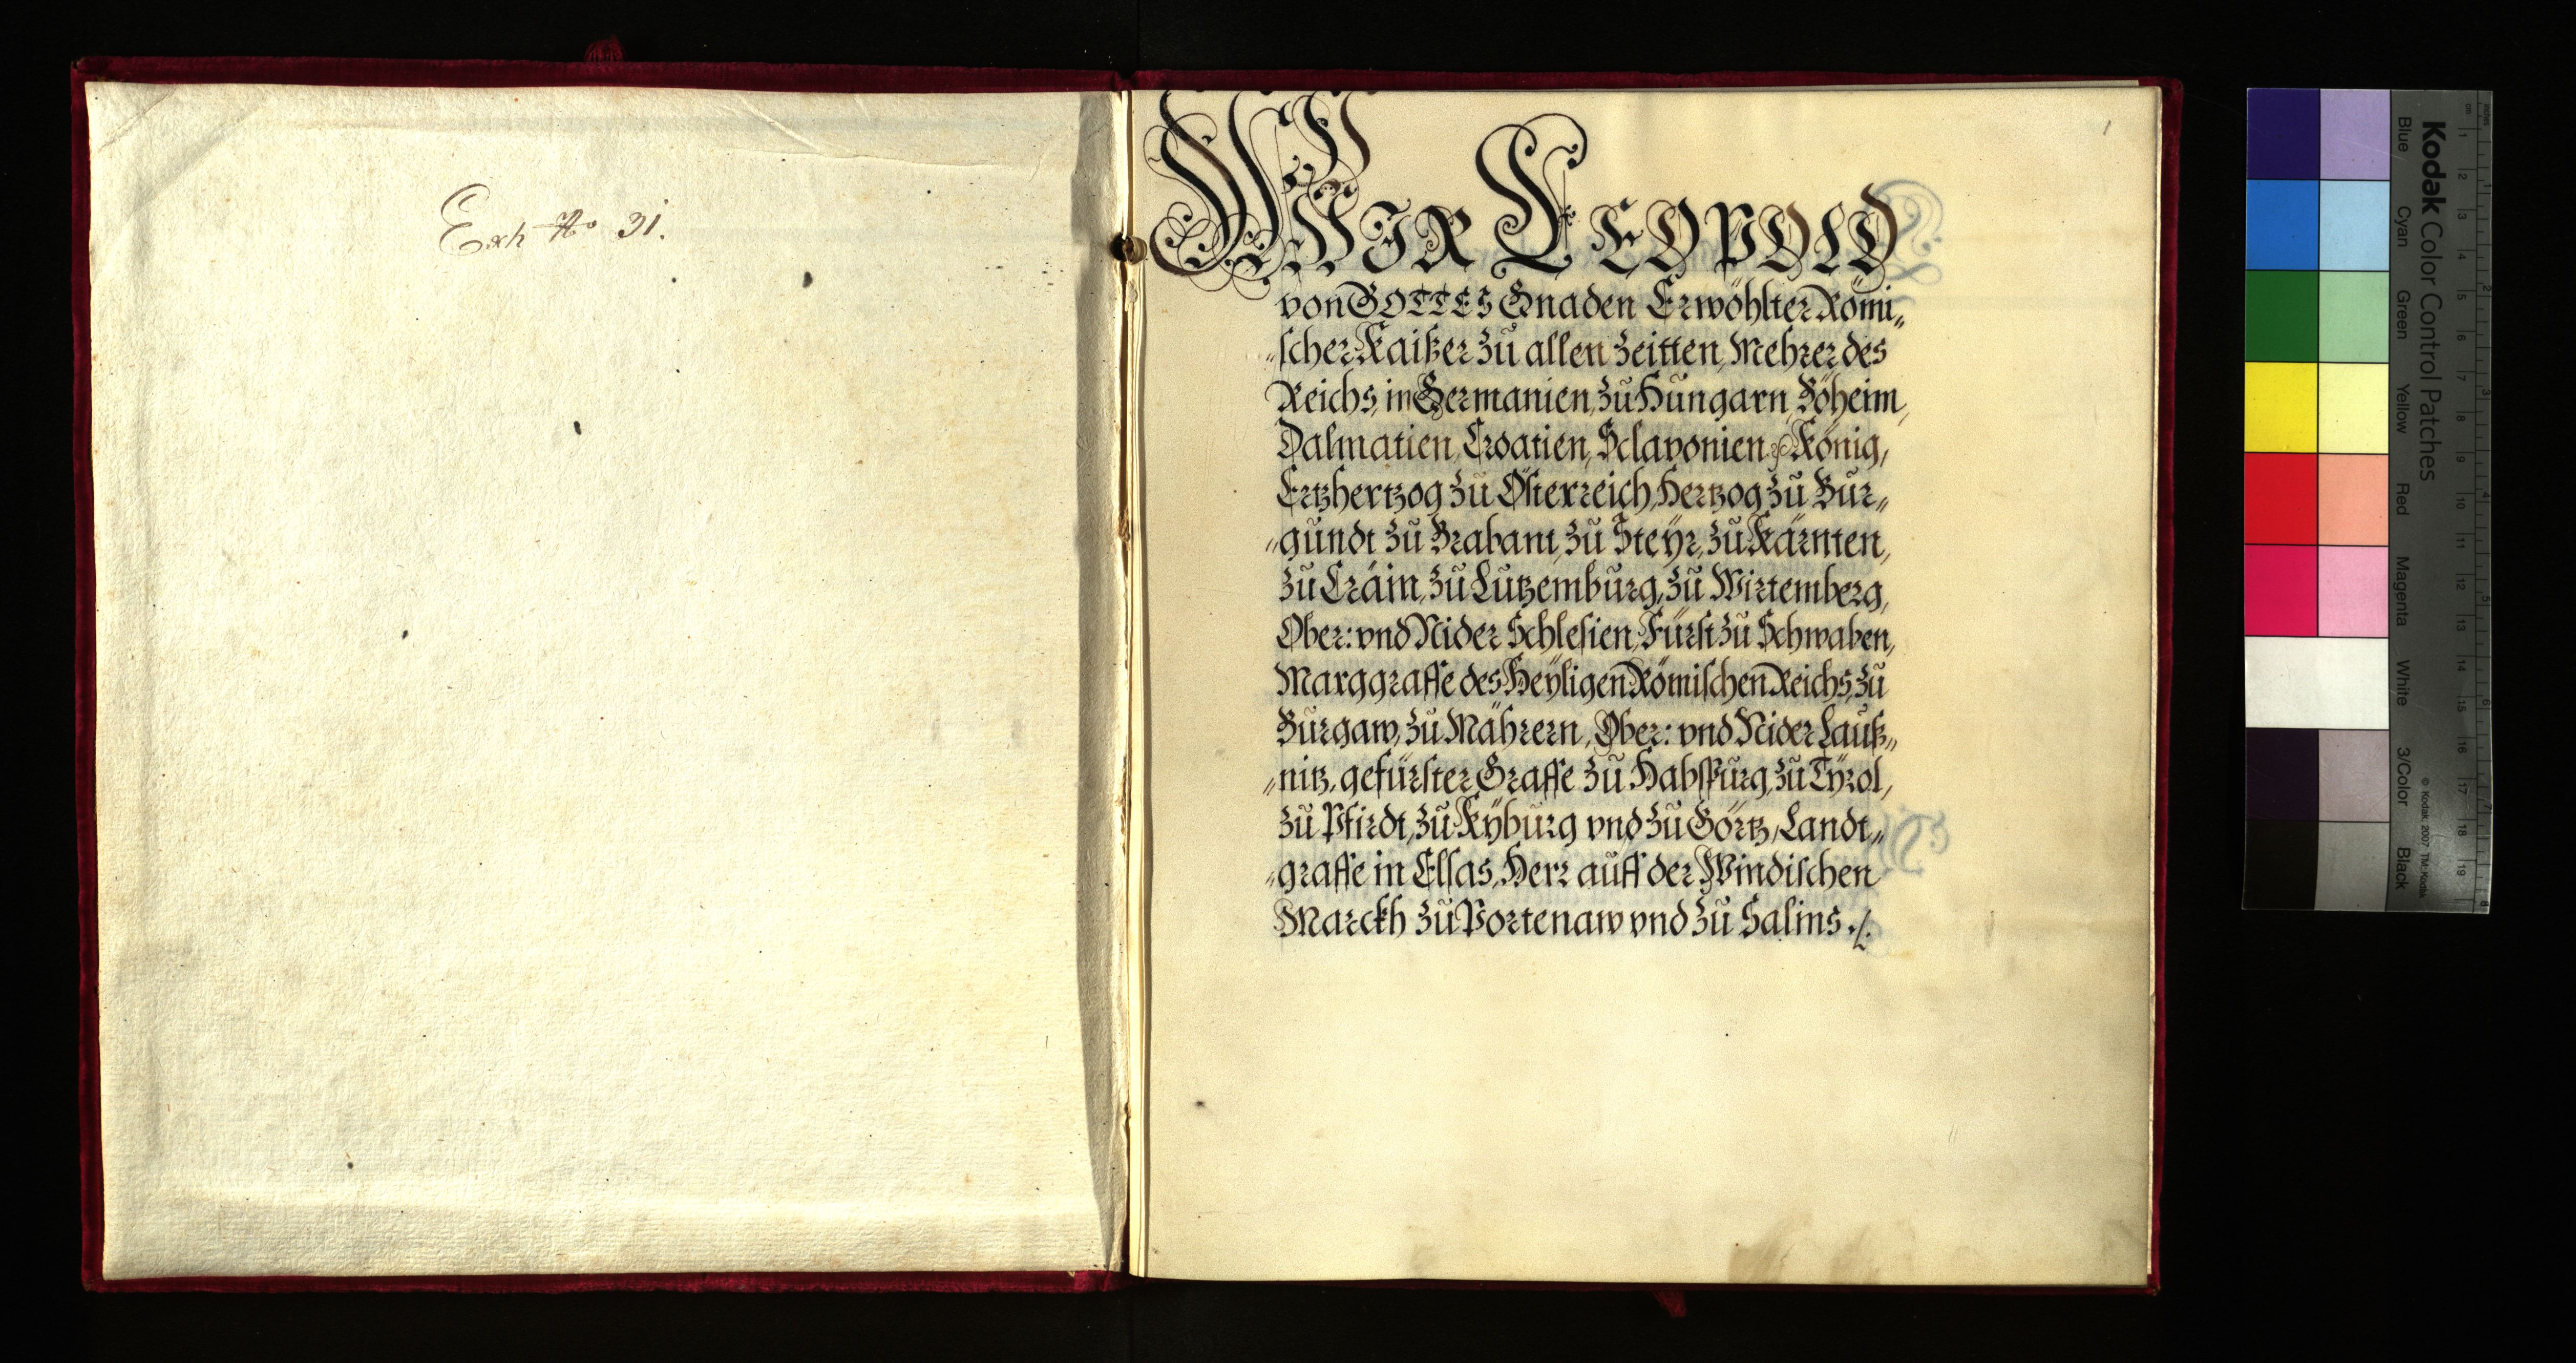 Exh No 31.
1
WIR LEOPOLD
von GOTTES Gnaden Erwöhlter Römi„
„scher Kaißer zu allen zeitten, Mehrer des
Reichs, in Germanien, zu Hungarn, Böheim,
Dalmatien, Croatien, Sclavonien König,
Ertzhertzog zu Österreich, Hertzog zu Bur„
„gundt zu Brabant, zu Steÿr, zu Kärnten,
zu Cräin, zu Lutzemburg, zu Wirtemberg,
Ober: vnd Nider Schlesien, Fürst zu Schwaben,
Marggraffe des Heÿligen Römischen Reichs, zu
Burgaw, zu Mährern, Ober: vnd Nider Lauß„
„nitz, gefürster Graffe zu Habspurg, zu Tÿrol,
zu Pfirdt, zu Kÿburg vnd zu Görtz, Landt„
„graffe in Elsas, Herr auff der Windischen
Marckh zu Portenaw vnd zu Salins ./.
Kodak Color Control Patches
© Kodak, 2007 TM: Kodak
Blue Cyan Green Yellow Red Magenta White 3/Color Black
inches 1 2 3 4 5 6 7 8
cm 1 2 3 4 5 6 7 8 9 10 11 12 13 14 15 16 17 18 19